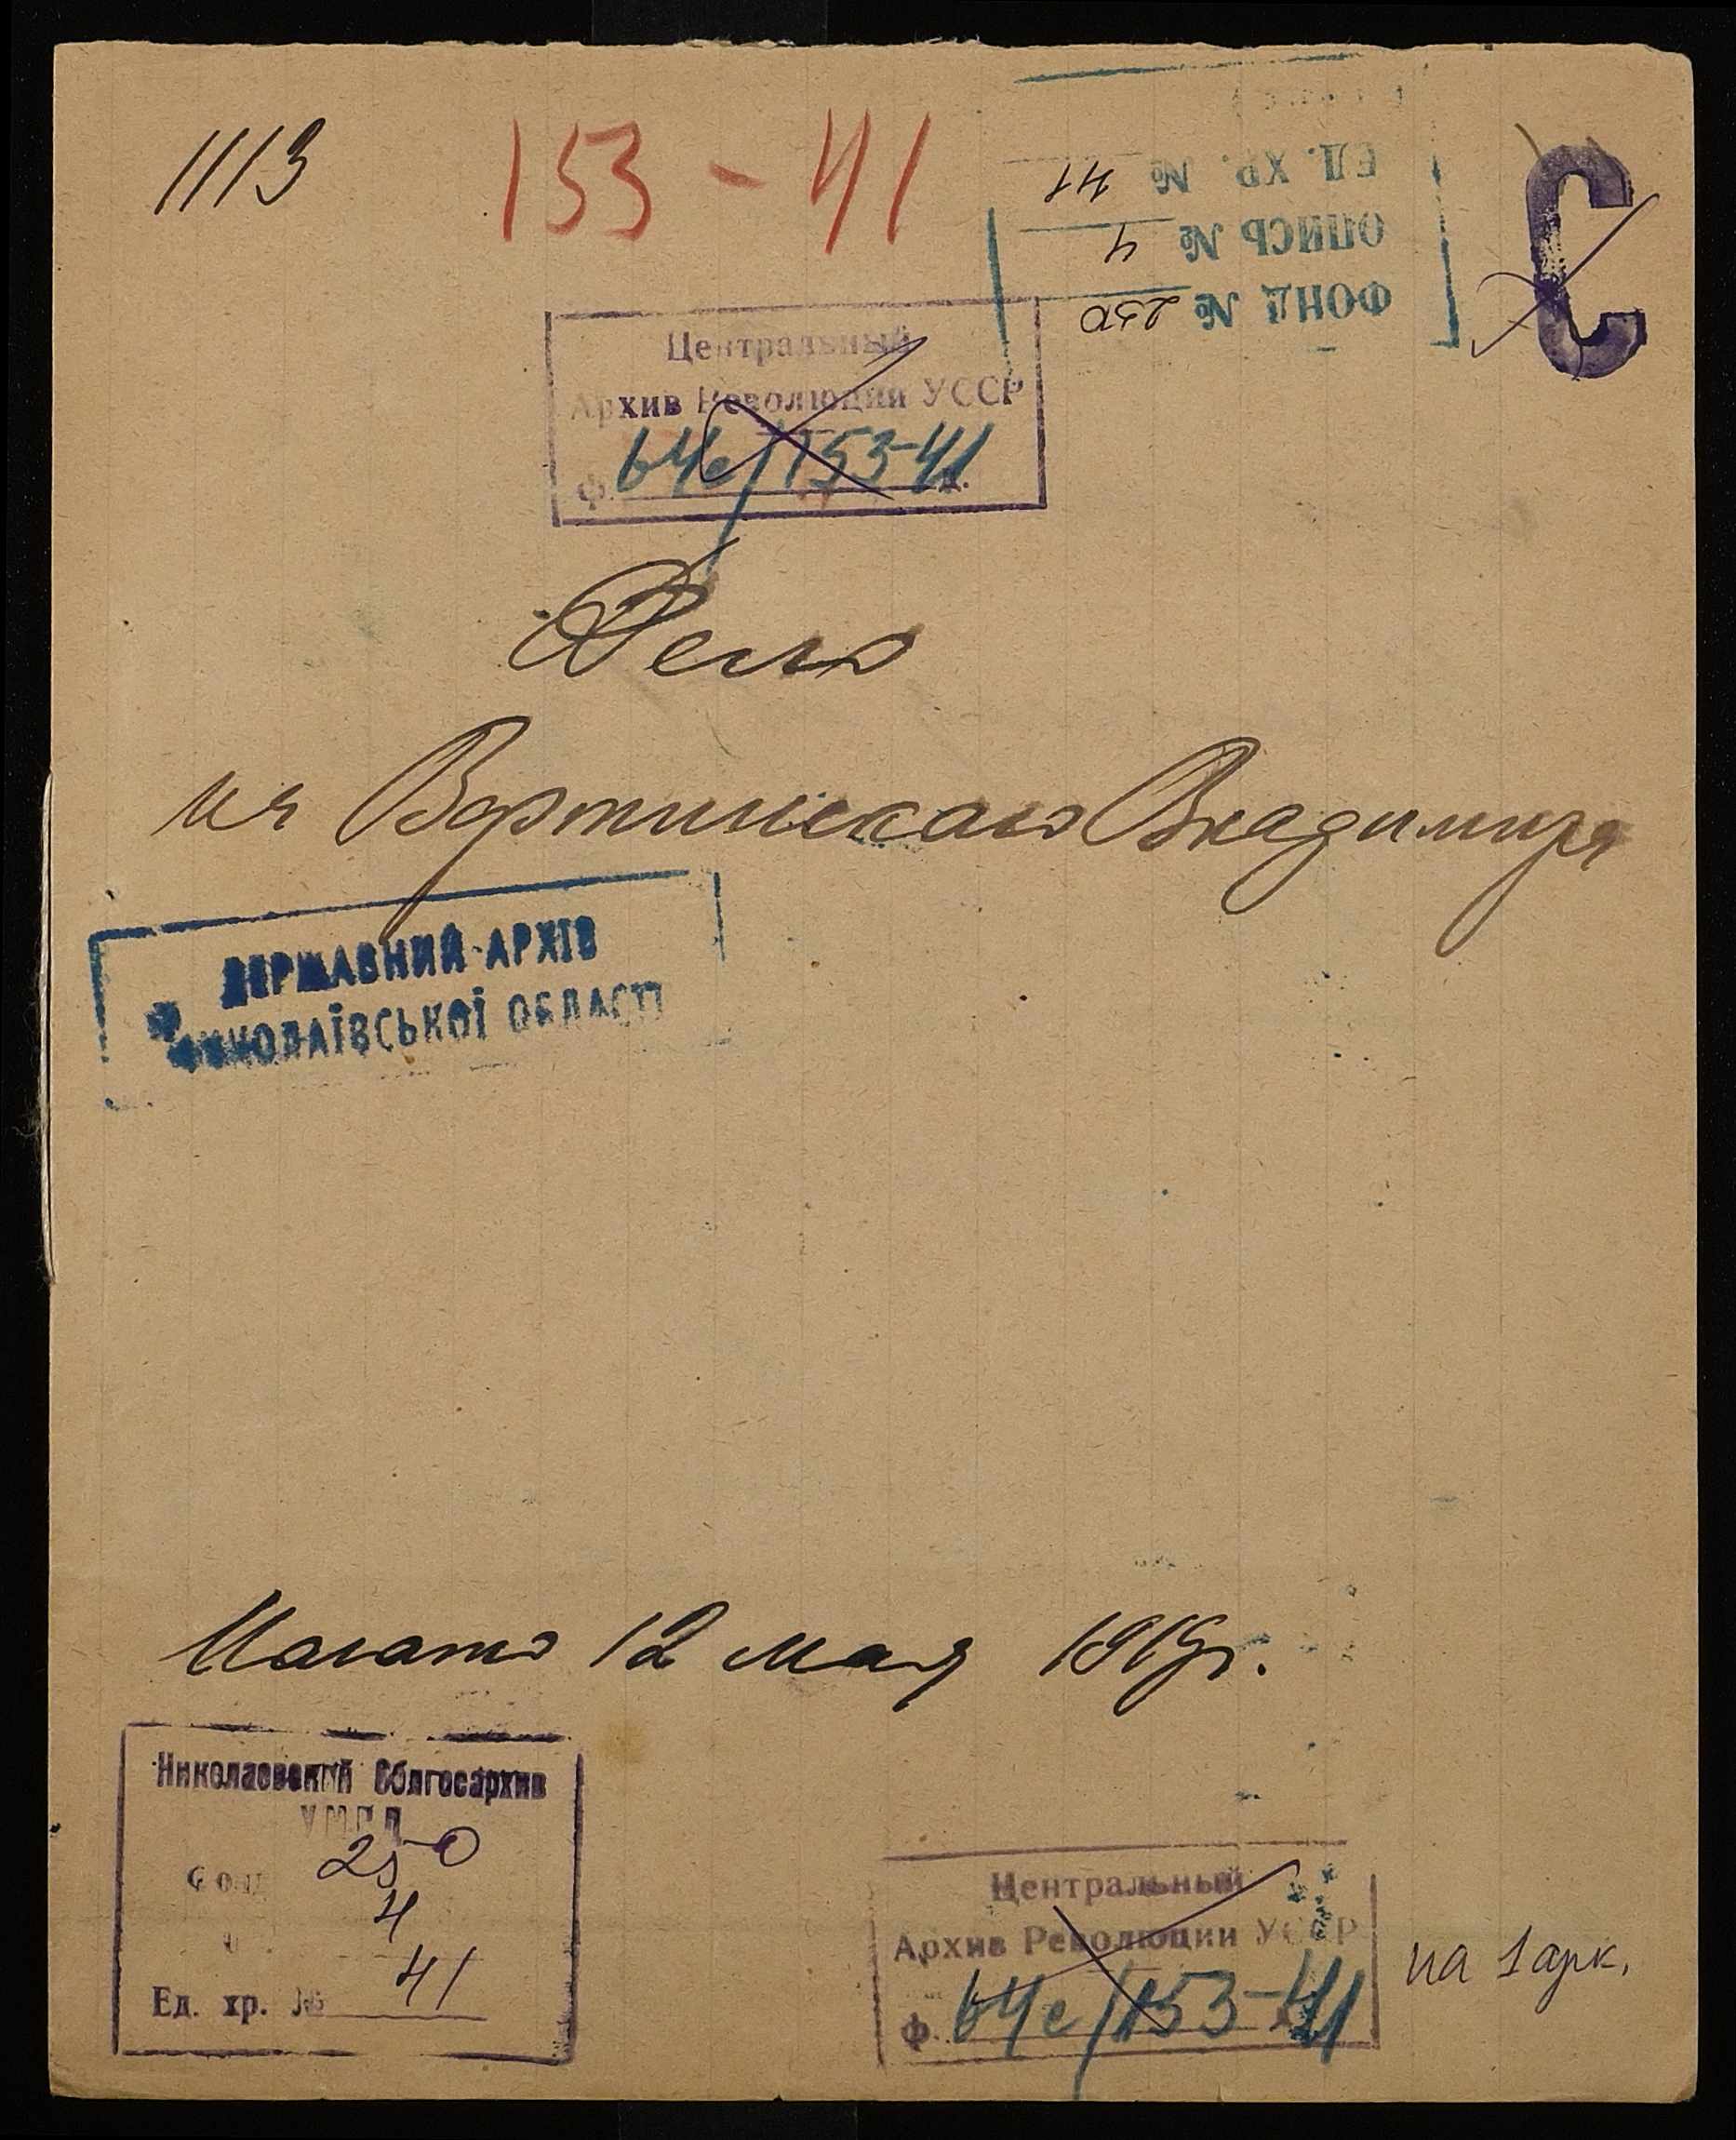 1113
153-41
ФОНД № 250
ОПИСЬ № 4
ЕД. ХР. № 41
С
Центральный
Архив Революции УССР
ф. 64с/153-41 д.
Дело
Вертинскаго Владимира
ДЕРЖАВНИЙ АРХІВ
МИКОЛАЇВСЬКОЇ ОБЛАСТІ
Начато 12 мая 1919г.
Николаевский Облгосархив
УМВД
Фонд 250
4
Ед. хр. № 41
Центральный
Архив Революции УССР
ф. 64с/153-41
на 1 арк.